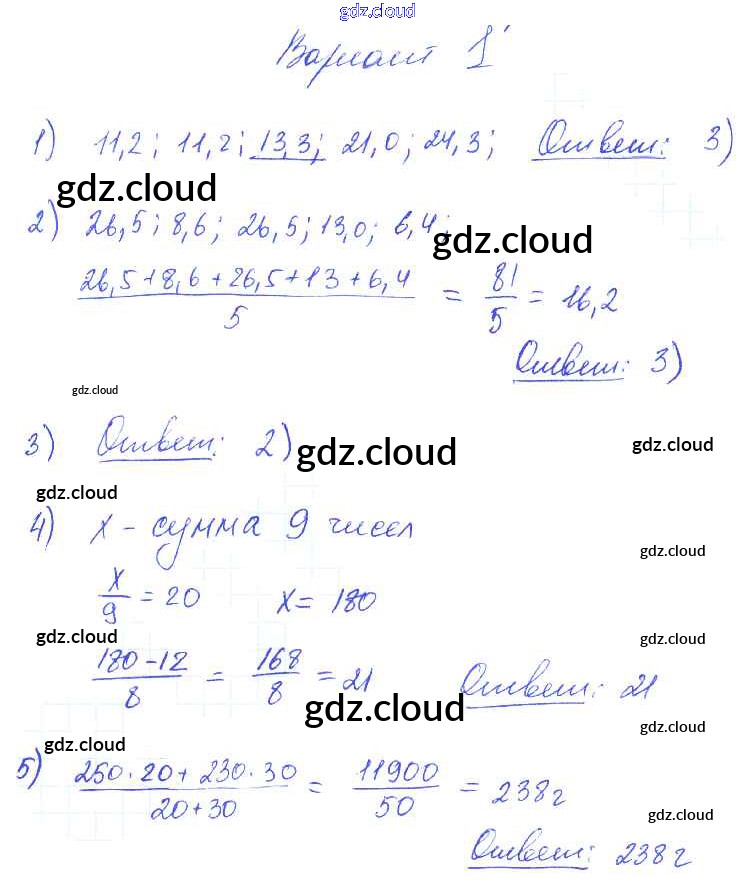 gdz.cloud
Вариант 1
1) 11,2; 11,2; 13,3; 21,0; 24,3; Ответ: 3)
gdz.cloud
2) 26,5; 8,6; 26,5; 13,0; 6,4;
gdz.cloud
26,5+8,6+26,5+13+6,4 / 5 = 81/5 = 16,2
Ответ: 3)
gdz.cloud
3) Ответ: 2)
gdz.cloud
gdz.cloud
gdz.cloud
4) x - сумма 9 чисел
gdz.cloud
x/9 = 20 x = 180
gdz.cloud
gdz.cloud
180-12 / 8 = 168/8 = 21 Ответ: 21
gdz.cloud
gdz.cloud
gdz.cloud
5) 250·20+230·30 / 20+30 = 11900/50 = 238г
gdz.cloud
gdz.cloud
Ответ: 238г